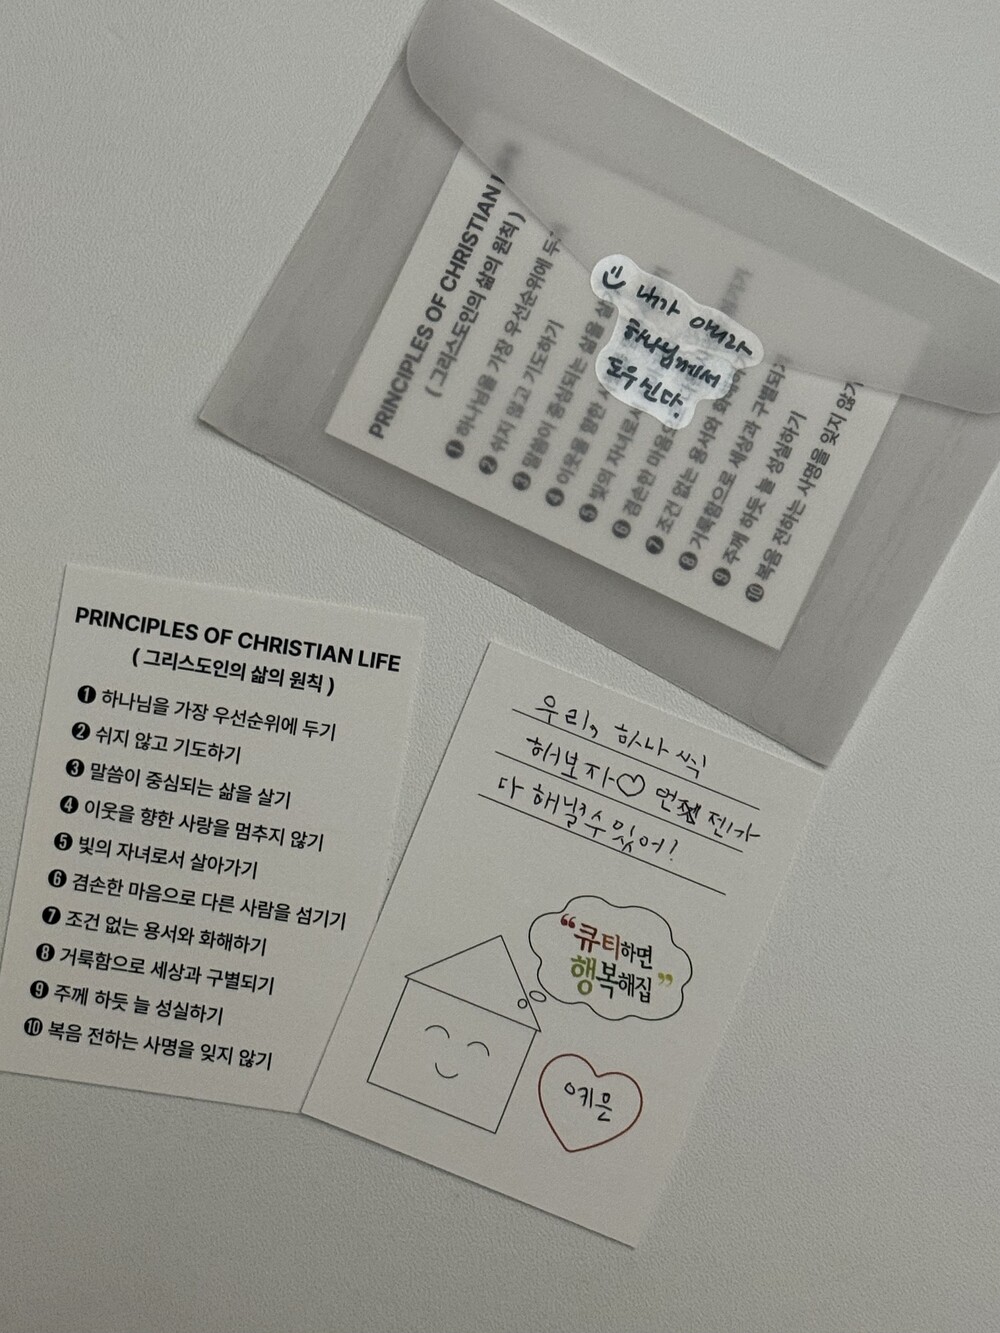 PRINCIPLES OF CHRISTIAN
( 그리스도인의 삶의 원칙 )
❶ 하나님을 가장 우선순위에 두기
❷ 쉬지 않고 기도하기
❸ 말씀이 중심되는 삶을 살
❹ 이웃을 향한
❺ 빛의 자녀로
❻ 겸손한 마음
❼ 조건 없는 용서와 화해
❽ 거룩함으로 세상과 구별되기
❾ 주께 하듯 늘 성실하기
❿ 복음 전하는 사명을 잊지 않기
내가 아니라
하나님께서
도우신다.
PRINCIPLES OF CHRISTIAN LIFE
( 그리스도인의 삶의 원칙 )
❶ 하나님을 가장 우선순위에 두기
❷ 쉬지 않고 기도하기
❸ 말씀이 중심되는 삶을 살기
❹ 이웃을 향한 사랑을 멈추지 않기
❺ 빛의 자녀로서 살아가기
❻ 겸손한 마음으로 다른 사람을 섬기기
❼ 조건 없는 용서와 화해하기
❽ 거룩함으로 세상과 구별되기
❾ 주께 하듯 늘 성실하기
❿ 복음 전하는 사명을 잊지 않기
우리, 하나씩
해보자♡ 언젠가
다 해낼 수 있어!
“큐티하면
행복해집”
예키믄